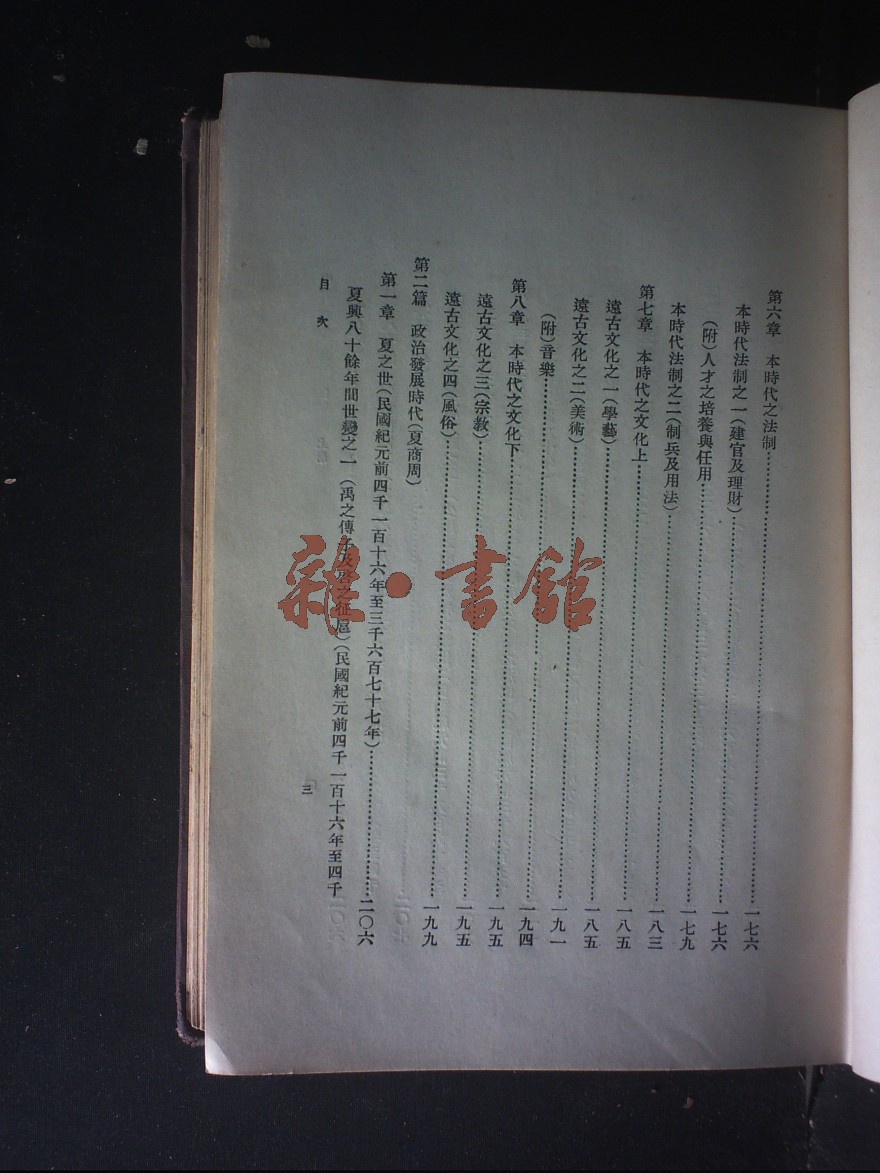 第六章　本時代之法制……一七六
本時代法制之一（建官及理財）……一七六
（附）人才之培養與任用……一七九
本時代法制之二（制兵及用法）……一八三
第七章　本時代之文化上……一八五
遠古文化之一（學藝）……一八五
遠古文化之二（美術）……一九一
（附）音樂……一九四
第八章　本時代之文化下……一九五
遠古文化之三（宗教）……一九五
遠古文化之四（風俗）……一九九
第二篇　政治發展時代（夏商周）
第一章　夏之世（民國紀元前四千一百十六年至三千六百七十七年）……二〇六
夏興八十餘年間世變之一（禹之傳子及啓之征扈）（民國紀元前四千一百十六年至四千
目次
三
雜·書館